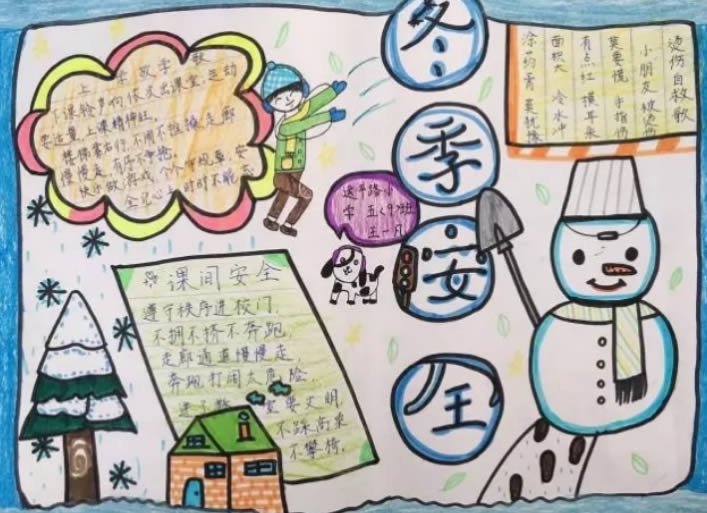 冬季安全
上学放学歌
下课铃声响依次出课室,运动
要适量,上课精神旺。
楼梯靠右行,不闹不推操走廊
慢慢走,有序不争抢。
快乐做游戏,个个守规章,安
全记心上,时时不能忘
烫伤自救歌
小朋友被烫伤
莫要慌 手指伤
有点红 摸耳朵
面积大 冷水冲
涂药膏
送平路小
学 五(9)班
王一凡
课间安全
遵守秩序进校门,
不拥不挤不奔跑,
走廊通道慢慢走,
奔跑打闹太危险,
室要文明,
不踩高桌
不攀椅,